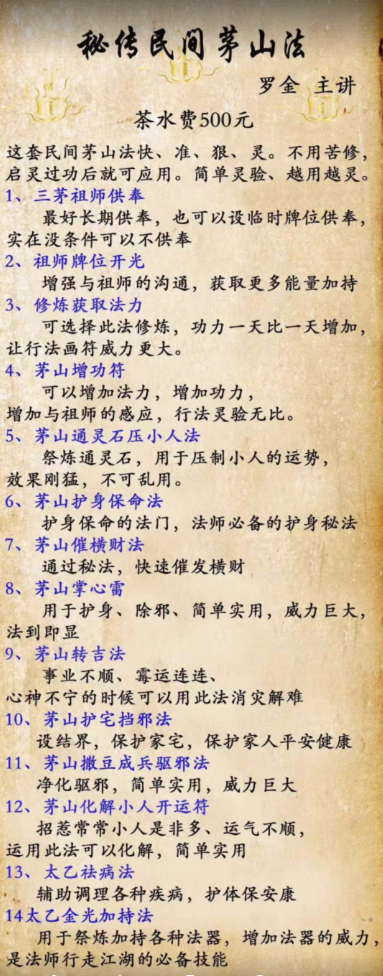 秘传民间茅山法
罗金 主讲
茶水费500元
这套民间茅山法快、准、狠、灵。不用苦修，
启灵过功后就可应用。简单灵验、越用越灵。
1、三茅祖师供奉
最好长期供奉，也可以设临时牌位供奉，
实在没条件可以不供奉
2、祖师牌位开光
增强与祖师的沟通，获取更多能量加持
3、修炼获取法力
可选择此法修炼，功力一天比一天增加，
让行法画符威力更大。
4、茅山增功符
可以增加法力，增加功力，
增加与祖师的感应，行法灵验无比。
5、茅山通灵石压小人法
祭炼通灵石，用于压制小人的运势，
效果刚猛，不可乱用。
6、茅山护身保命法
护身保命的法门，法师必备的护身秘法
7、茅山催横财法
通过秘法，快速催发横财
8、茅山掌心雷
用于护身、除邪、简单实用，威力巨大，
法到即显
9、茅山转吉法
事业不顺、霉运连连、
心神不宁的时候可以用此法消灾解难
10、茅山护宅挡邪法
设结界，保护家宅，保护家人平安健康
11、茅山撒豆成兵驱邪法
净化驱邪，简单实用，威力巨大
12、茅山化解小人开运符
招惹常常小人是非多、运气不顺，
运用此法可以化解，简单实用
13、太乙祛病法
辅助调理各种疾病，护体保安康
14太乙金光加持法
用于祭炼加持各种法器，增加法器的威力，
是法师行走江湖的必备技能